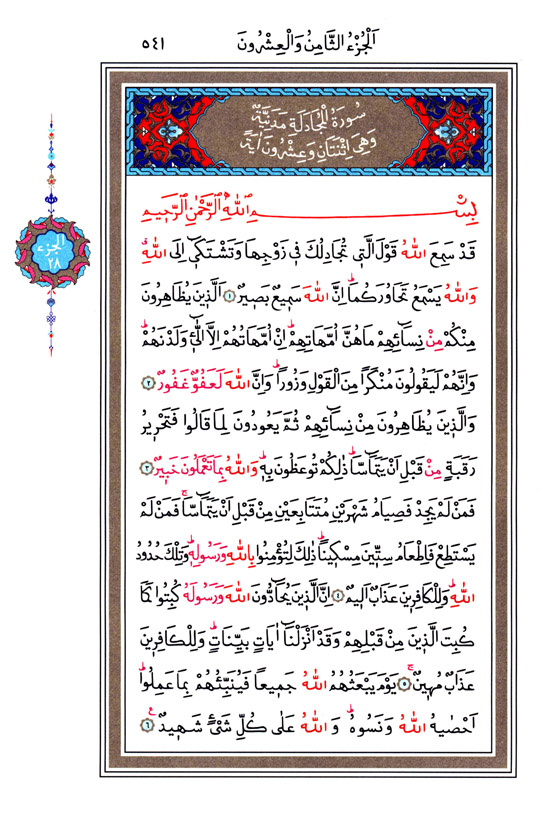 اَلْجُزْءُ الثَّامِنُ وَالْعِشْرُونَ
٥٤١
سُورَةُ الْمُجَادَلَةِ مَدَنِيَّةٌ
وَهِيَ اثْنَتَانِ وَعِشْرُونَ اٰيَةً
الجزء
٢٨
بِسْمِ اللّٰهِ الرَّحْمٰنِ الرَّحِيمِ
قَدْ سَمِعَ اللّٰهُ قَوْلَ الَّتِي تُجَادِلُكَ فِي زَوْجِهَا وَتَشْتَكِٓي اِلَى اللّٰهِۗ
وَاللّٰهُ يَسْمَعُ تَحَاوُرَكُمَاۜ اِنَّ اللّٰهَ سَمِيعٌ بَصِيرٌ ﴿١﴾ اَلَّذِينَ يُظَاهِرُونَ
مِنْكُمْ مِنْ نِسَٓائِهِمْ مَا هُنَّ اُمَّهَاتِهِمْۜ اِنْ اُمَّهَاتُهُمْ اِلَّا الّٰٓـِٔي وَلَدْنَهُمْۜ
وَاِنَّهُمْ لَيَقُولُونَ مُنْكَرًا مِنَ الْقَوْلِ وَزُورًاۜ وَاِنَّ اللّٰهَ لَعَفُوٌّ غَفُورٌ ﴿٢﴾
وَالَّذِينَ يُظَاهِرُونَ مِنْ نِسَٓائِهِمْ ثُمَّ يَعُودُونَ لِمَا قَالُوا فَتَحْرِيرُ
رَقَبَةٍ مِنْ قَبْلِ اَنْ يَتَمَٓاسَّاۜ ذٰلِكُمْ تُوعَظُونَ بِهِۜ وَاللّٰهُ بِمَا تَعْمَلُونَ خَبِيرٌ ﴿٣﴾
فَمَنْ لَمْ يَجِدْ فَصِيَامُ شَهْرَيْنِ مُتَتَابِعَيْنِ مِنْ قَبْلِ اَنْ يَتَمَٓاسَّاۚ فَمَنْ لَمْ
يَسْتَطِعْ فَاِطْعَامُ سِتِّينَ مِسْكِينًاۜ ذٰلِكَ لِتُؤْمِنُوا بِاللّٰهِ وَرَسُولِهِۜ وَتِلْكَ حُدُودُ
اللّٰهِۜ وَلِلْكَافِرِينَ عَذَابٌ اَلِيمٌ ﴿٤﴾ اِنَّ الَّذِينَ يُحَٓادُّونَ اللّٰهَ وَرَسُولَهُ كُبِتُوا كَمَا
كُبِتَ الَّذِينَ مِنْ قَبْلِهِمْ وَقَدْ اَنْزَلْنَٓا اٰيَاتٍ بَيِّنَاتٍۜ وَلِلْكَافِرِينَ
عَذَابٌ مُهِينٌۚ ﴿٥﴾ يَوْمَ يَبْعَثُهُمُ اللّٰهُ جَمِيعًا فَيُنَبِّئُهُمْ بِمَا عَمِلُواۜ
اَحْصٰيهُ اللّٰهُ وَنَسُوهُۜ وَاللّٰهُ عَلٰى كُلِّ شَيْءٍ شَهِيدٌ۟ ﴿٦﴾